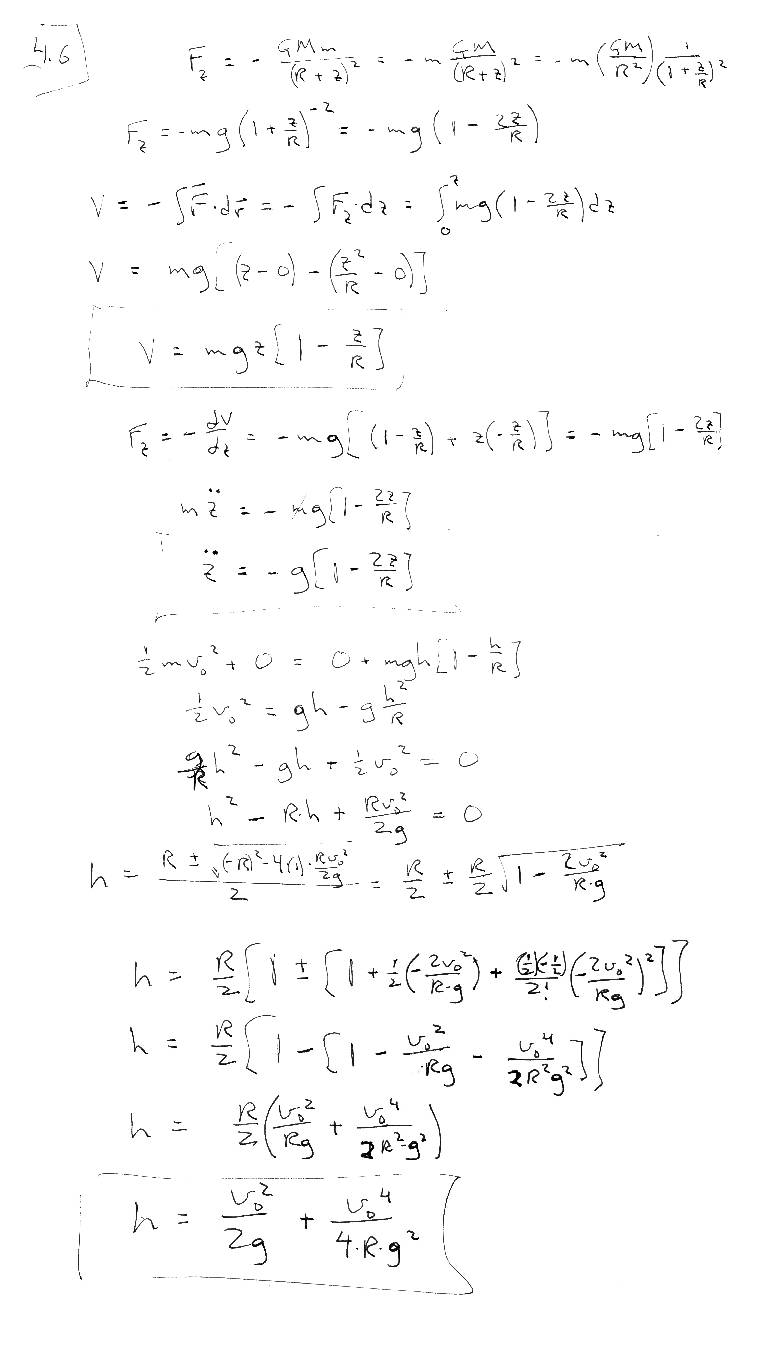 4.6
F_z = - GMm/(R + z)² = - m GM/(R+z)² = - m (GM/R²) 1/(1 + z/R)²
F_z = -mg(1 + z/R)^-2 = - mg(1 - 2z/R)
V = - ∫F⃗·dr⃗ = - ∫F_z·dz = ∫₀^z mg(1 - 2z/R)dz
V = mg[(z-0) - (z²/R - 0)]
V = mgz[1 - z/R]
F_z = - dV/dz = - mg[(1 - z/R) + z(-z/R)] = - mg[1 - 2z/R]
m z̈ = - mg[1 - 2z/R]
z̈ = - g[1 - 2z/R]
½mv₀² + 0 = 0 + mgh[1 - h/R]
½v₀² = gh - g h²/R
g/R h² - gh + ½v₀² = 0
h² - R·h + Rv₀²/2g = 0
h = (R ± √((-R)² - 4(1)·Rv₀²/2g))/2 = R/2 ± R/2 √(1 - 2v₀²/R·g)
h = R/2[1 ± [1 + ½(-2v₀²/R·g) + (½)(-½)/2! (-2v₀²/Rg)²]]
h = R/2[1 - [1 - v₀²/Rg - v₀⁴/2R²g²]]
h = R/2(v₀²/Rg + v₀⁴/2R²·g²)
h = v₀²/2g + v₀⁴/4·R·g²